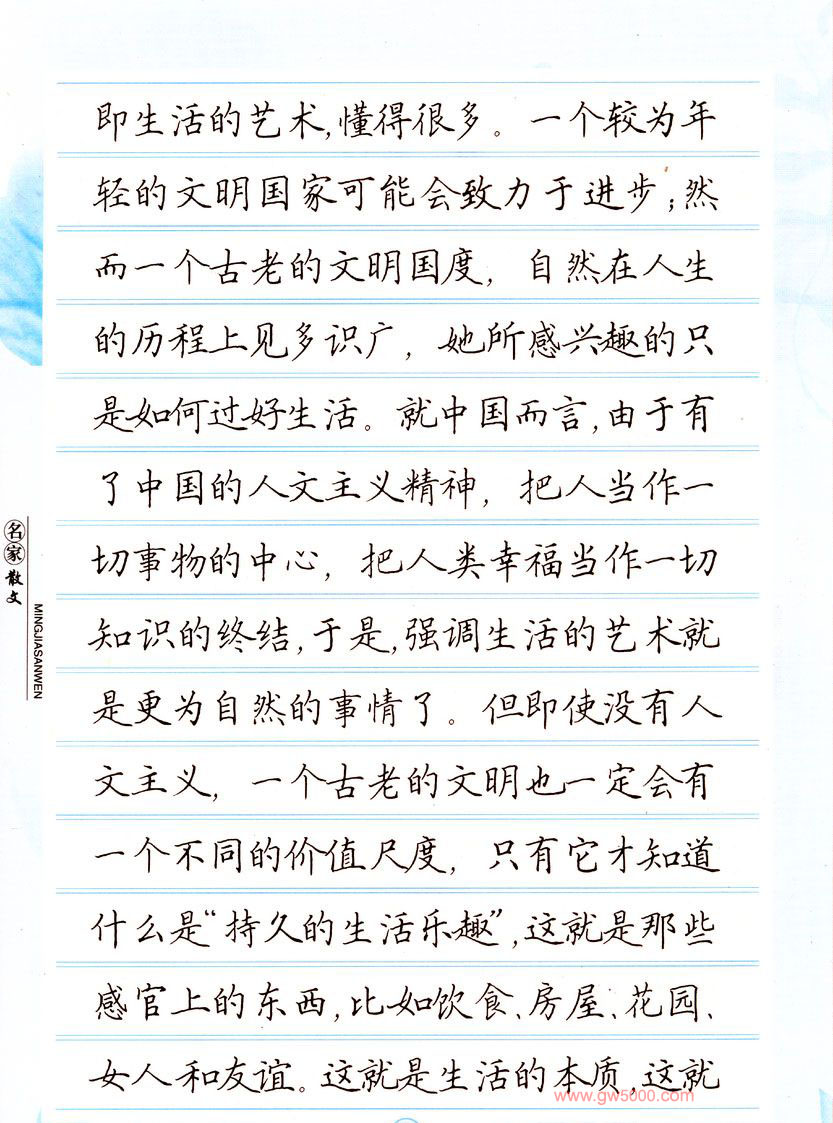 即生活的艺术,懂得很多。一个较为年
轻的文明国家可能会致力于进步;然
而一个古老的文明国度，自然在人生
的历程上见多识广，她所感兴趣的只
是如何过好生活。就中国而言,由于有
了中国的人文主义精神，把人当作一
切事物的中心，把人类幸福当作一切
知识的终结,于是,强调生活的艺术就
是更为自然的事情了。但即使没有人
文主义，一个古老的文明也一定会有
一个不同的价值尺度，只有它才知道
什么是“持久的生活乐趣”,这就是那些
感官上的东西,比如饮食、房屋、花园、
女人和友谊。这就是生活的本质,这就
名家散文
MINGJIASANWEN
www.gw5000.com